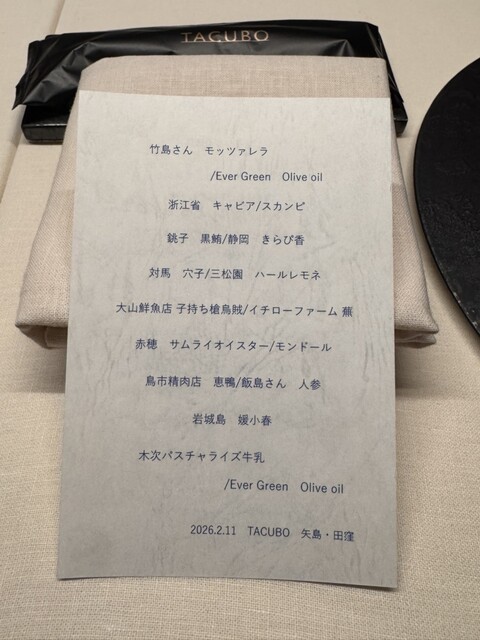 TACUBO
竹島さん　モッツァレラ
/Ever Green　Olive oil
浙江省　キャビア/スカンピ
銚子　黒鮪/静岡　きらぴ香
対馬　穴子/三松園　ハールレモネ
大山鮮魚店 子持ち槍烏賊/イチローファーム 蕪
赤穂　サムライオイスター/モンドール
鳥市精肉店　恵鴨/飯島さん　人参
岩城島　媛小春
木次パスチャライズ牛乳
/Ever Green　Olive oil
2026.2.11　TACUBO　矢島・田窪